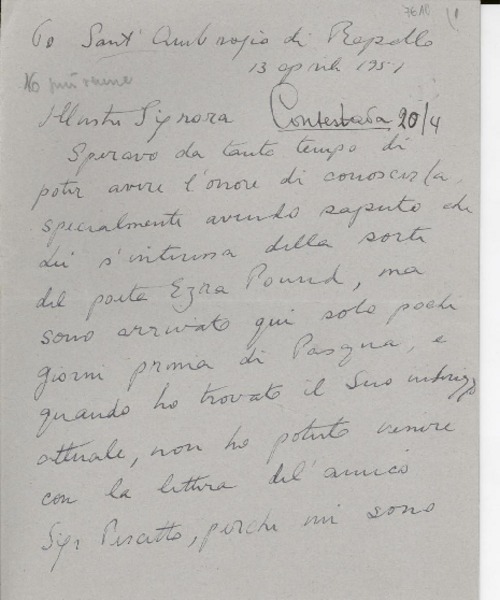 7610
To Sant' Ambrogio di Rapallo
13 aprile 1951
No più venne
Illustre Signora Contestada 20/4
Speravo da tanto tempo di
poter avere l'onore di conoscerla,
specialmente avendo saputo che
Lei s'interessa della sorte
del poeta Ezra Pound, ma
sono arrivato qui solo pochi
giorni prima di Pasqua, e
quando ho trovato il Suo indirizzo
attuale, non ho potuto venire
con la lettera del' amico
Sigr Pescatto, perché mi sono